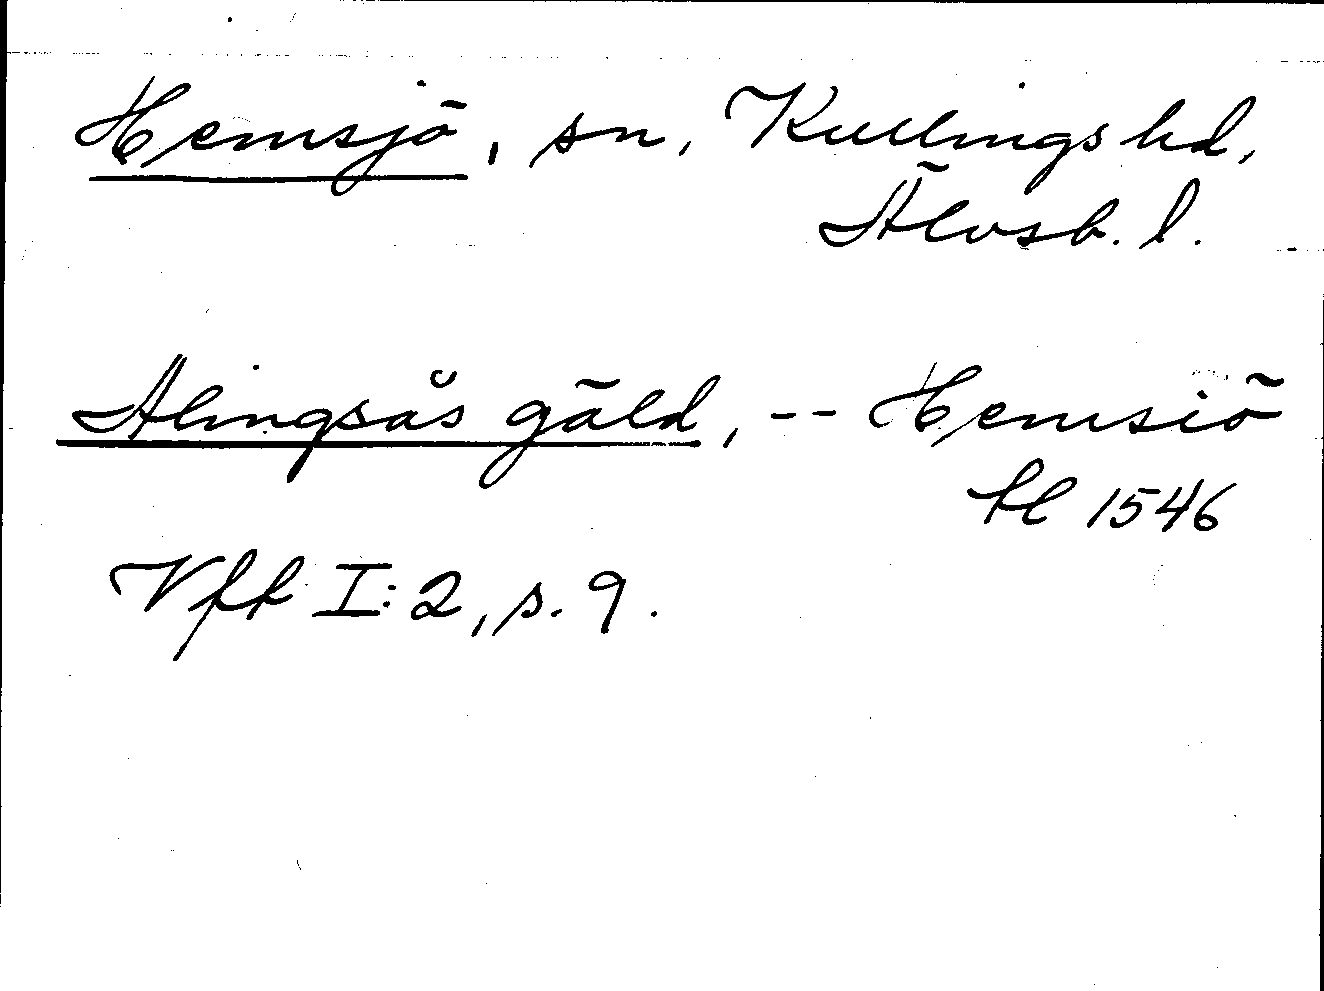 Hemsjö, sn, Kullings hd,
Älvsb. l.
Alingsås gäld, -- Hemsiö
tl 1546
Vff I:2, s. 9.